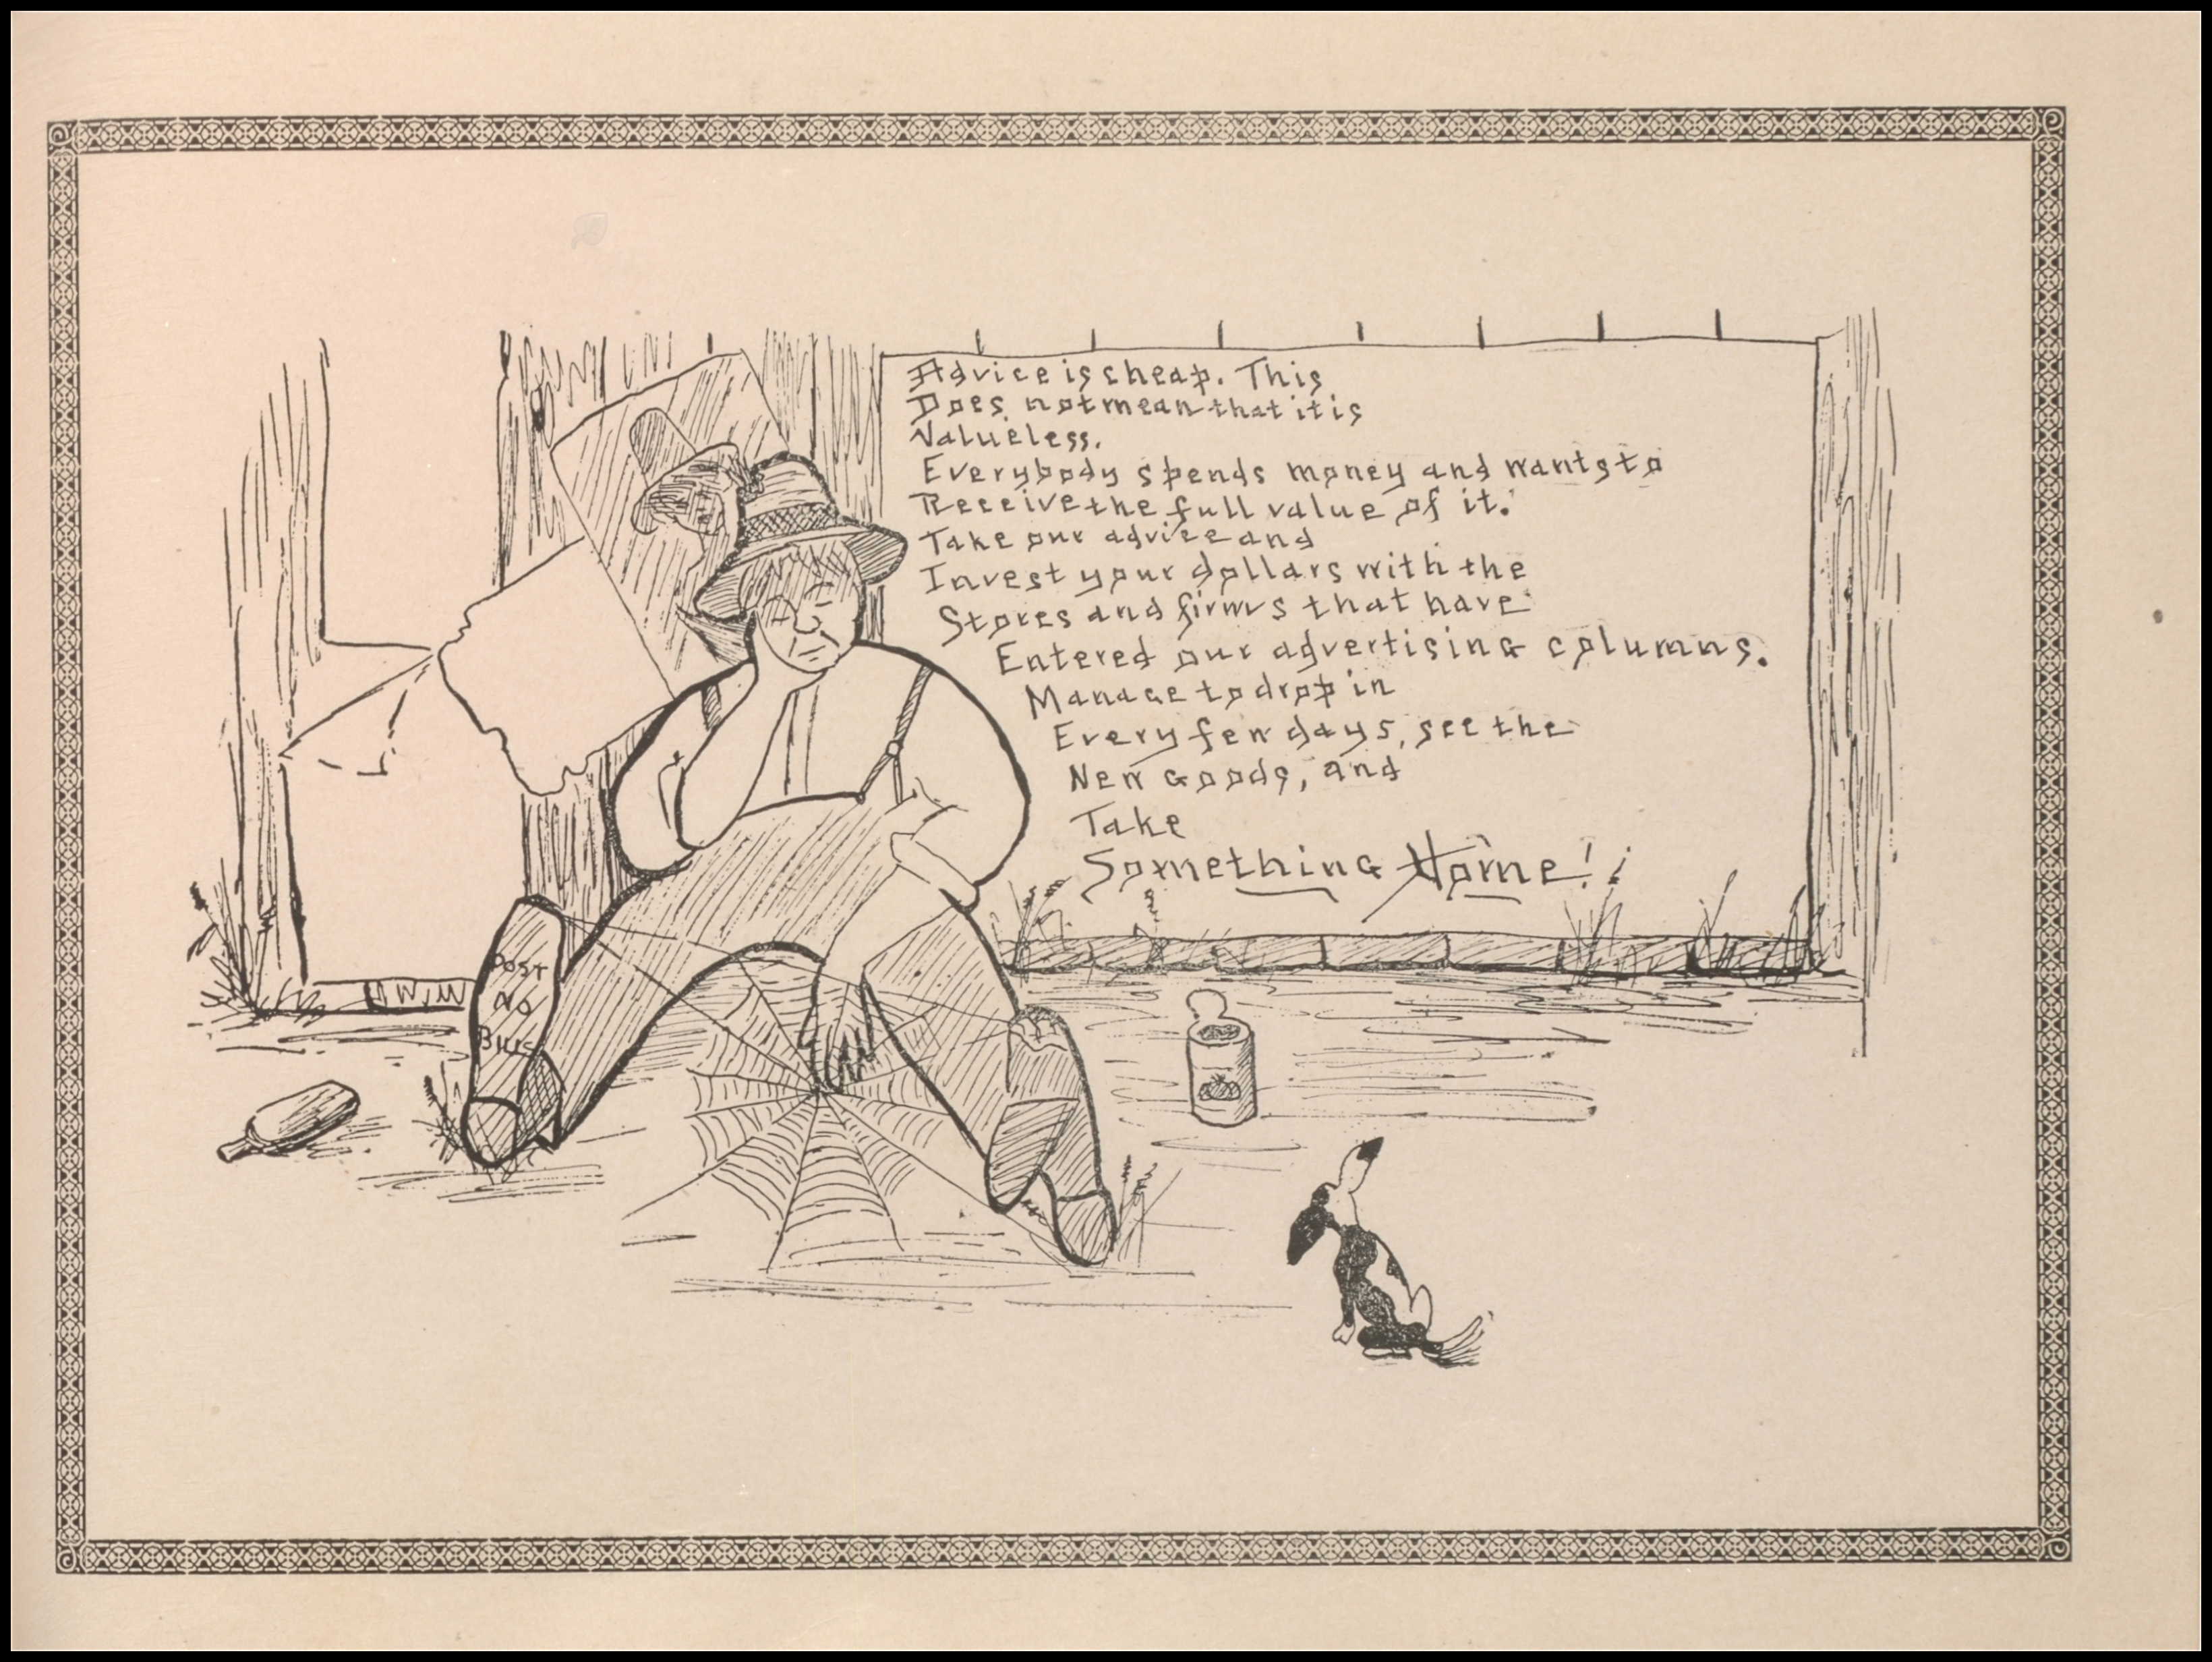 Advice is cheap. This
Does not mean that it is
Valueless.
Everybody spends money and wants to
Receive the full value of it.
Take our advice and
Invest your dollars with the
Stores and firms that have
Entered our advertising columns.
Manage to drop in
Every few days, see the
New Goods, and
Take
Something Home!
Post
No
Bills